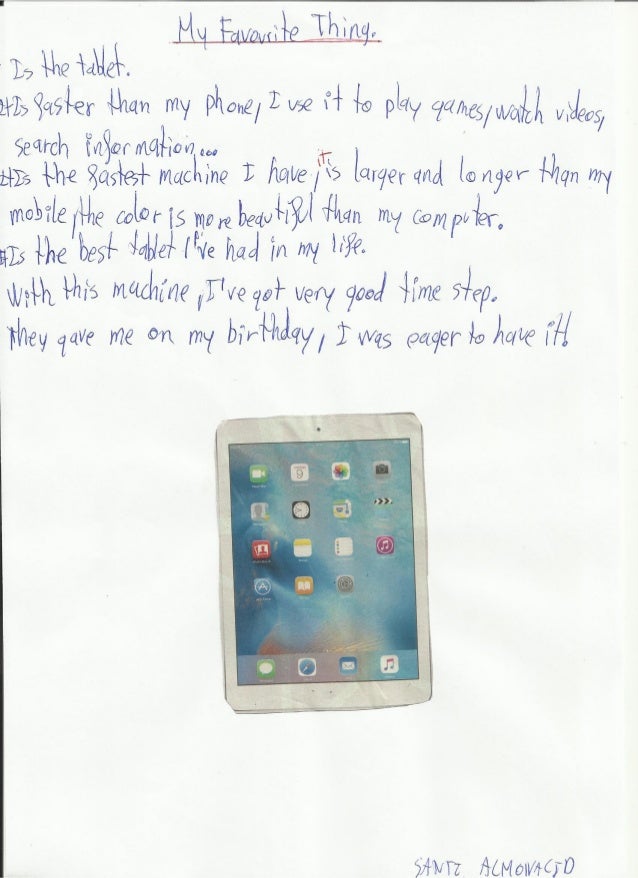 My Favourite Thing.
Is the tablet.
It Is faster than my phone, I use it to play games, watch videos,
search information...
It Is the fastest machine I have, it is larger and longer than my
mobile, the color is more beautiful than my computer.
It Is the best tablet I've had in my life.
With this machine, I've got very good time step.
They gave me on my birthday, I was eager to have it!
9
SANTI ALMONACID